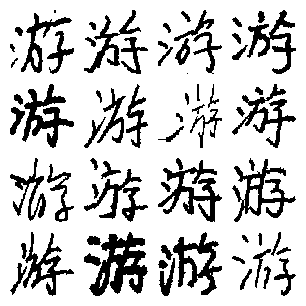 游游游游
游游游游
游游游游
游游游游